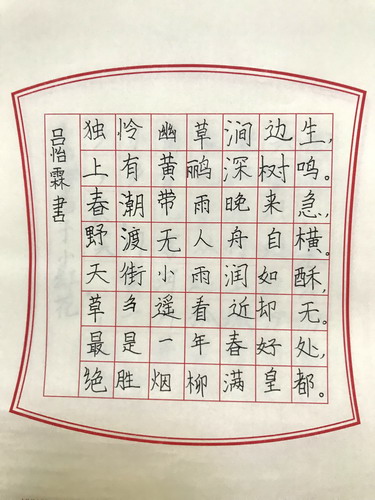 独怜幽草涧边生,
上有黄鹂深树鸣。
春潮带雨晚来急,
野渡无人舟自横。
天街小雨润如酥,
草刍遥看近却无。
最是一年春好处,
绝胜烟柳满皇都。
吕怡霖書